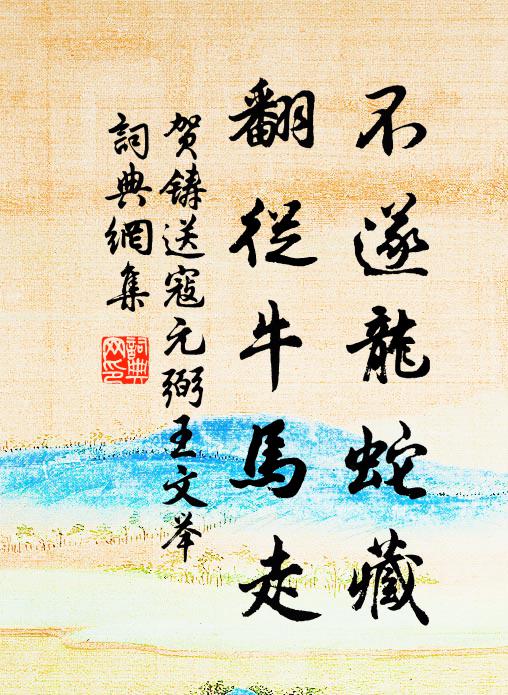 不遂龍蛇藏
翻從牛馬走
贺鑄送寇元弼王文举
詞典網集
詞典網印